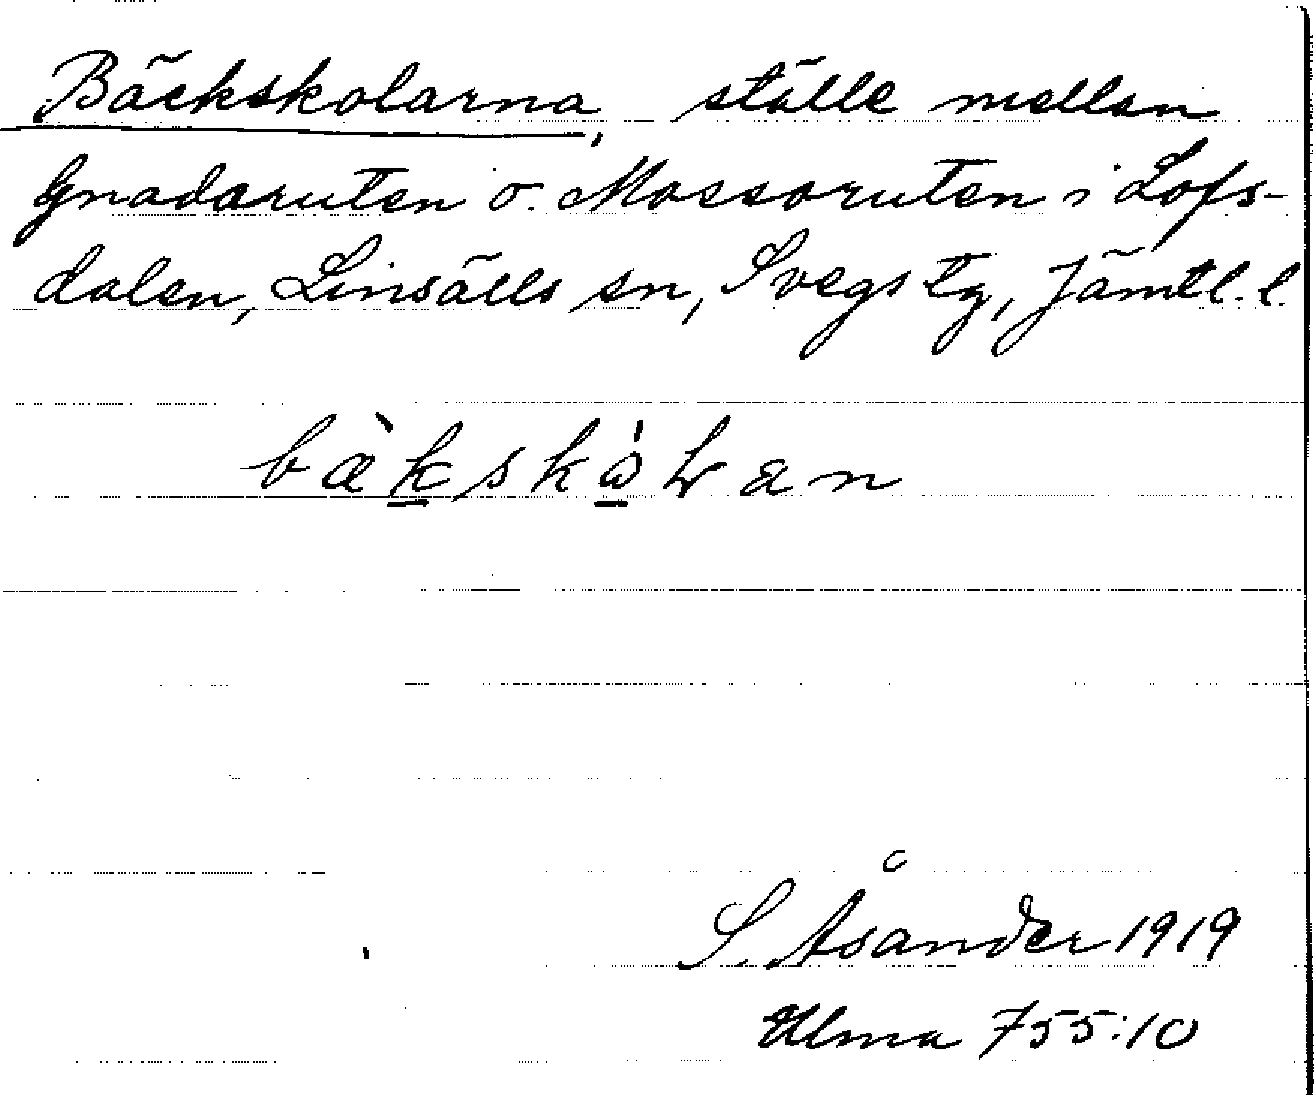 Bäckskolarna, ställe mellan
Gnadaruten o. Mossoruten i Lofs-
dalen, Linsälls sn, Svegs tg, Jämtl. l.
S. Åsander 1919
Ulma 755:10